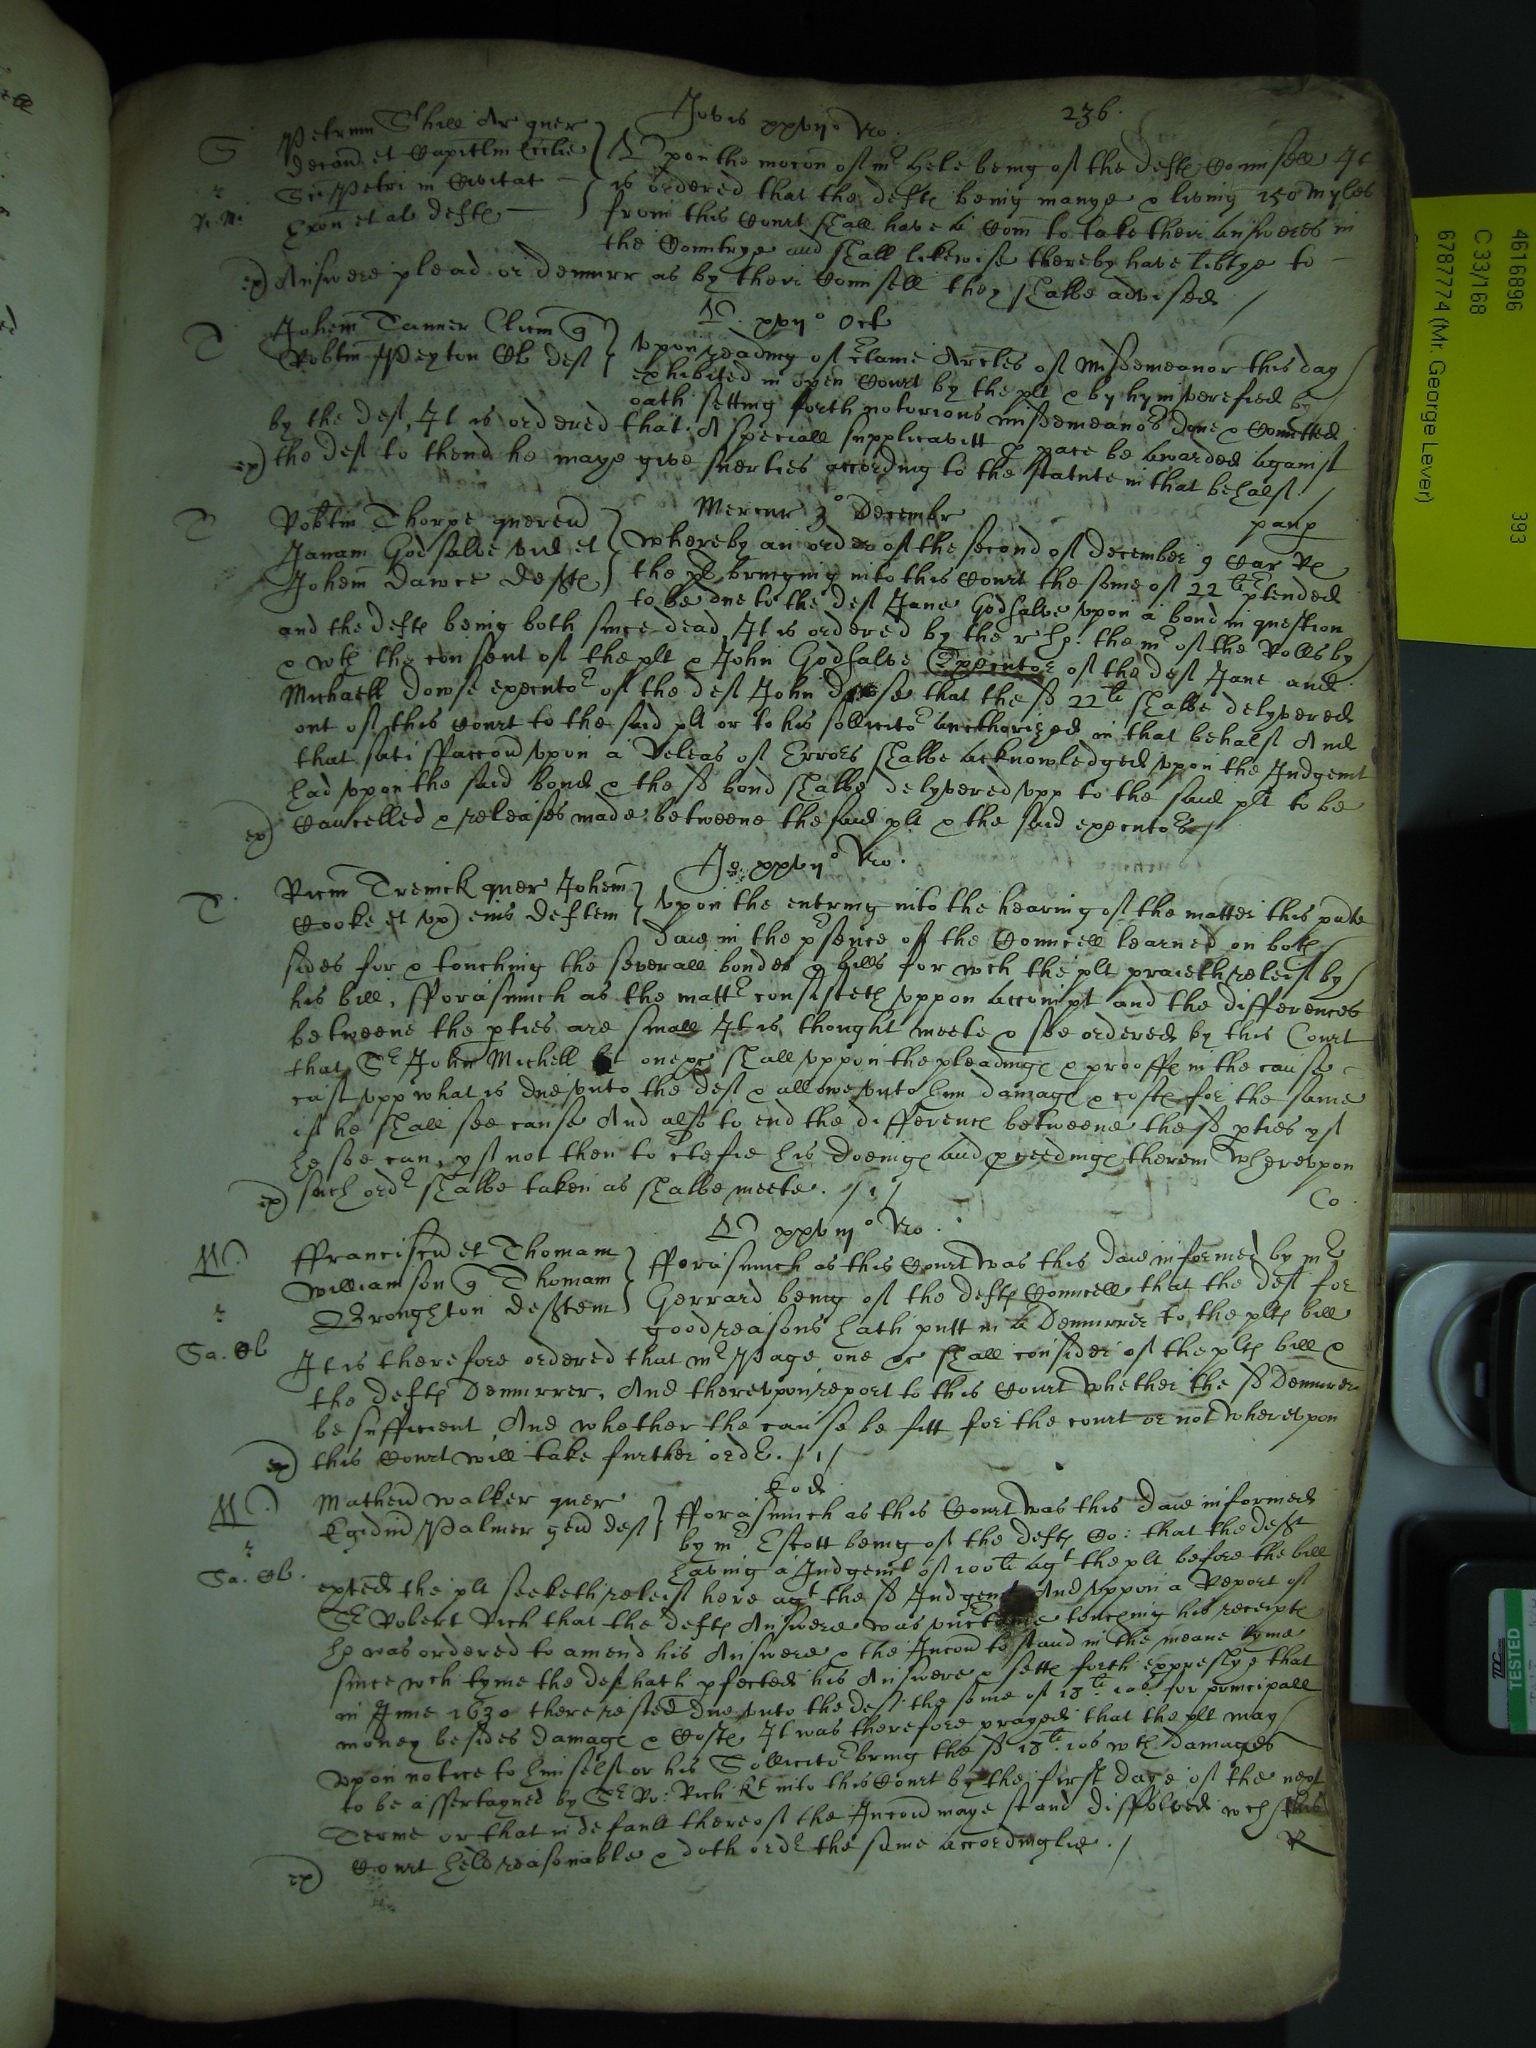 236.
Jovis xxvij° No.
S Petrum Skill Ar quer
Decan et Capitlm Eccle
Sci Petri in Civitat
Exon et al defts
Ri: Mi:
Upon the mocon of mr Hele being of the defts Counsell It
is ordered that the defts being manye & living 150 myles
from this Court shall have a Com to take their answeres in
the Countrye and shall likewise thereby have libtye to
ex) Answere plead or demurr as by their Counsell they shalbe advised /
D xxij° Oct
T Johem Tanner Clicm q
Robtm Peyton Ob deft
Upon reading of ctaine Arcles of Misdemeanor this day
exhibited in open Court by the plt & by hym verefied by
oath setting forth notorious misdemeanors done & Comitted
by the deft, It is ordered that A speciall supplicavitt p pace be awarded against
ex) the deft to thend he maye give suerties according to the statute in that behalf /
Mercur 3° Decembr
paup
T Robtm Thorpe queren
Janam Godsalve vid et
Johem Dawce defts
Whereby an order of the second of December 9 Car Re
the plt bringing into this Court the some of 22li ptended
to be due to the deft Jane Godsalve upon a bond in question
and the defts being both since dead, It is ordered by the r ho: the mr of the Rolls by
& wth the consent of the plt & John Godsalve Executor of the deft Jane and
Michaell Dowse executor of the deft John Dowse that the sd 22li shalbe delyvered
out of this Court to the said plt or to his sollicitor aucthorized in that behalf And
that satisffaccon upon a Releas of Errors shalbe acknowledged upon the Judgemt
had upon the said bond & the sd bond shalbe delyvered upp to the said plt to be
ex) Cancelled & releases made betweene the said plt & the said executors /
Jo: xxvij° No.
T Ricm Tremick quer Johem
Cooke et ux) eius deftem
Upon the entring into the hearing of the matter this psente
daie in the psence of the Councell learned on both
sides for & touching the severall bondes & bills for wch the plt praieth releif by
his bill, fforasmuch as the mattr consisteth uppon accompt and the differences
betweene the pties are small It is thought meete & soe ordered by this Court
that Sr John Michell kt one &c shall uppon the pleadings & prooffs in the cause
cast upp what is due unto the deft & allowe unto him damags & costs for the same
if he shall see cause And also to end the differencs betweene the sd pties yf
he soe can, yf not then to ctefie his doeings and pceedings therein Whereupon
ex) such ordr shalbe taken as shalbe meete. / 1 /
Co.
D xxviij° No.
W ffranciscu et Thomam
Williamson q Thomam
Broughton deftem
Sa. Ob
fforasmuch as this Court was this daie informed by mr
Gerrard being of the defts Councell that the deft for
good reasons hath putt in a Demurrer to the plts bill
It is therefore ordered that mr Page one &c shall consider of the plts bill &
the defts Demurrer, And thereupon report to this Court whether the sd Demurrer
be sufficient And whether the cause be fitt for the court or not whereupon
ex) this Court will take further ordr. / 1 /
Eod
W Matheu walker quer
Egidiu Palmer gen deft
Sa. Ob.
fforasmuch as this Court was this daie informed
by mr Estcott being of the defts Co: that the deft
having a Judgemt of 100li agt the plt before the bill
exhted the plt seeketh releif here agt the sd Judgemt And uppon a Report of
Sr Robert Rich that the defts Answere was unctaine touching his receipts
he was ordered to amend his Answere & the Incon to stand in the meane tyme
since wch tyme the deft hath pfected his Answere & setts forth expreslye that
in Anno 1630 there rested due unto the deft the some of 18li 10s for principall
money besides damags & Costs It was therefore prayed that the plt may
upon notice to himself or his Sollicitor bring the sd 18li 10s wth Damages
to be assertayned by Sr Ro: Rich kt into this Court by the first daye of the next
Terme or that in default thereof the Incon maye stand dissolved wch this
ex) Court held reasonable & doth ordr the same accordinglie. /
R
4616896
C 33/168
678774 (Mr. George Lever)
393
TESTED